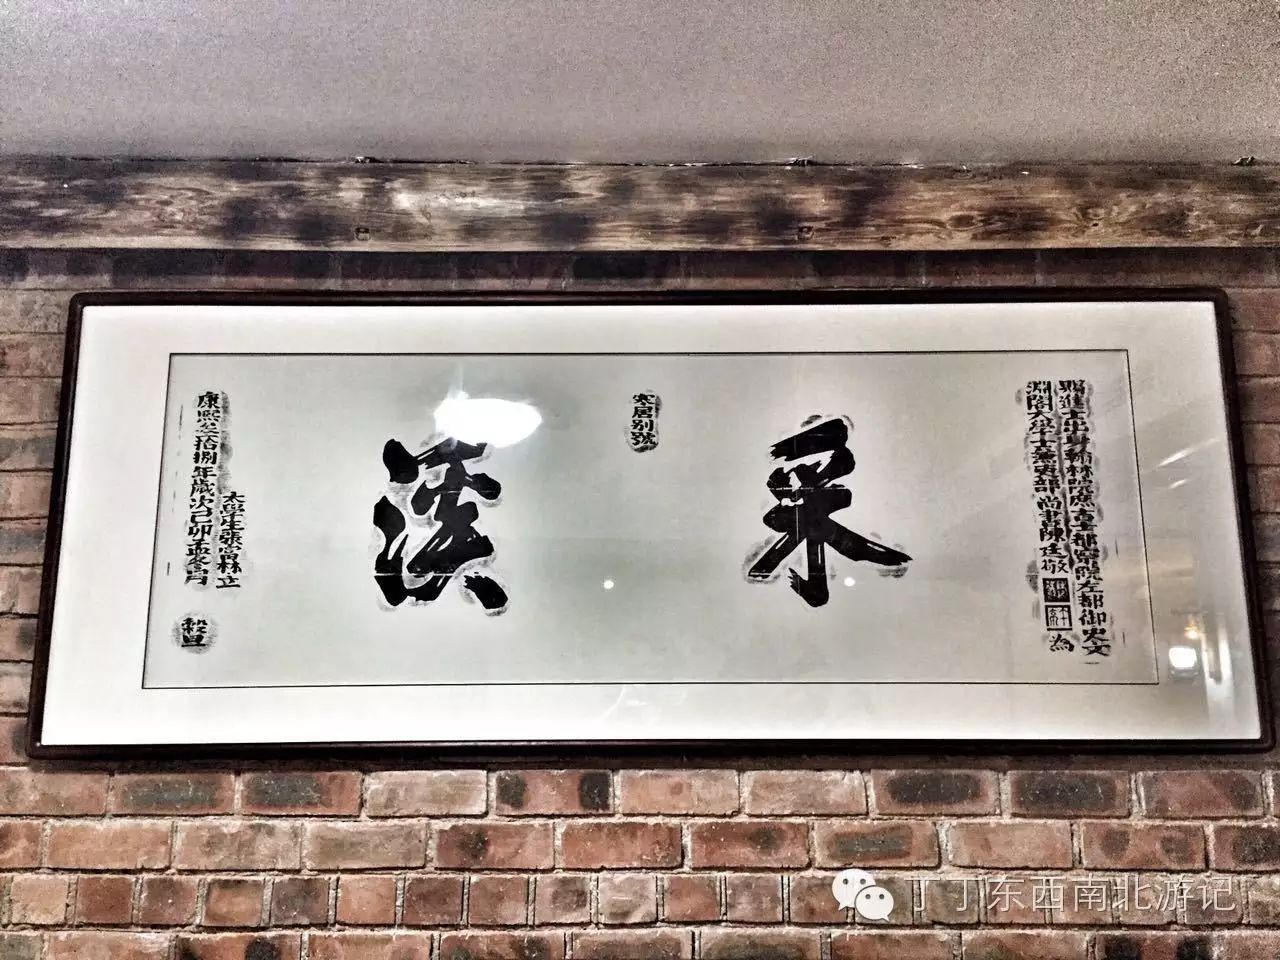 賜進士出身翰林院庶吉士都察院左都御史文
淵閣大學士兼吏部尚書陳廷敬
為
采
寒居别號
溪
太學生張富林立
康熙叁拾捌年歲次己卯孟冬月
穀旦
丁丁东西南北游记